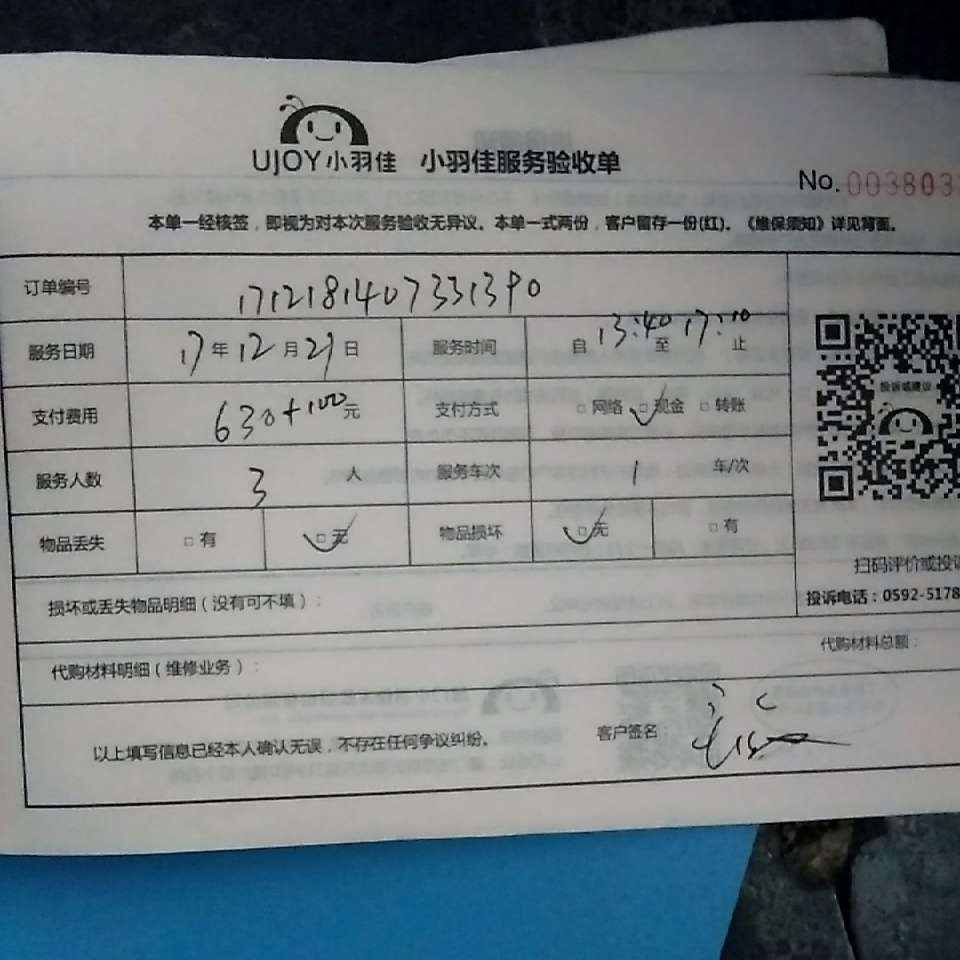 UJOY小羽佳 小羽佳服务验收单
No.003803
本单一经核签，即视为对本次服务验收无异议。本单一式两份，客户留存一份(红)。《维保须知》详见背面。
订单编号 1712181407331390
服务日期 17年12月21日 服务时间 自13:40至17:10止
支付费用 630+100元 支付方式 □网络 ☑现金 □转账
投诉或建议
服务人数 3人 服务车次 1 车/次
物品丢失 □有 ☑无 物品损坏 ☑无 □有
扫码评价或投
损坏或丢失物品明细（没有可不填）：
投诉电话：0592-5178
代购材料明细（维修业务）：
代购材料总额：
以上填写信息已经本人确认无误，不存在任何争议纠纷。
客户签名：